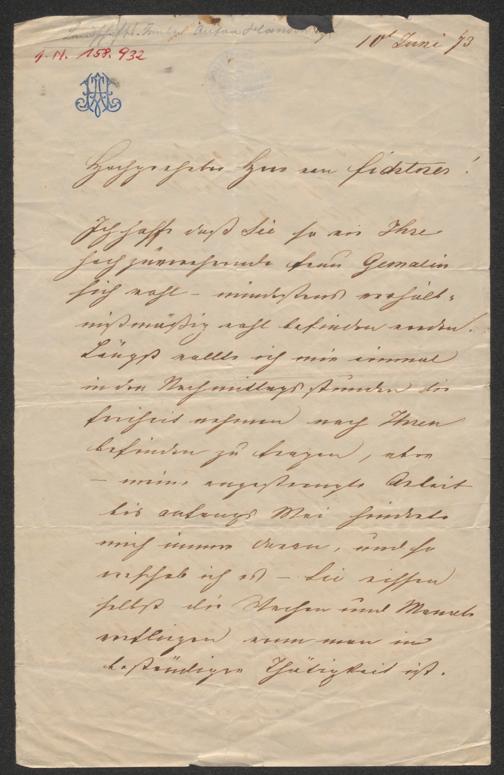 10t Juni 73
J. N. 158.932
Hochgeehrter Herr von
Ich hoffe daß Sie so wie Ihre
hoch zuverehrende Frau Gemalin
sich wohl – mindestens verhält-
nißmäßig wohl befinden werden.
Längst wollte ich mir einmal
in den Nachmittagsstunden die
Freiheit nehmen nach Ihrem
befinden zu fragen, aber
– meine angestrengte Arbeit
bis anfangs Mai hinderte
mich immer daran, und so
verschob ich es – Sie wissen
selbst wie Wochen und Monate
verfliegen wenn man in
beständiger Thätigkeit ist.